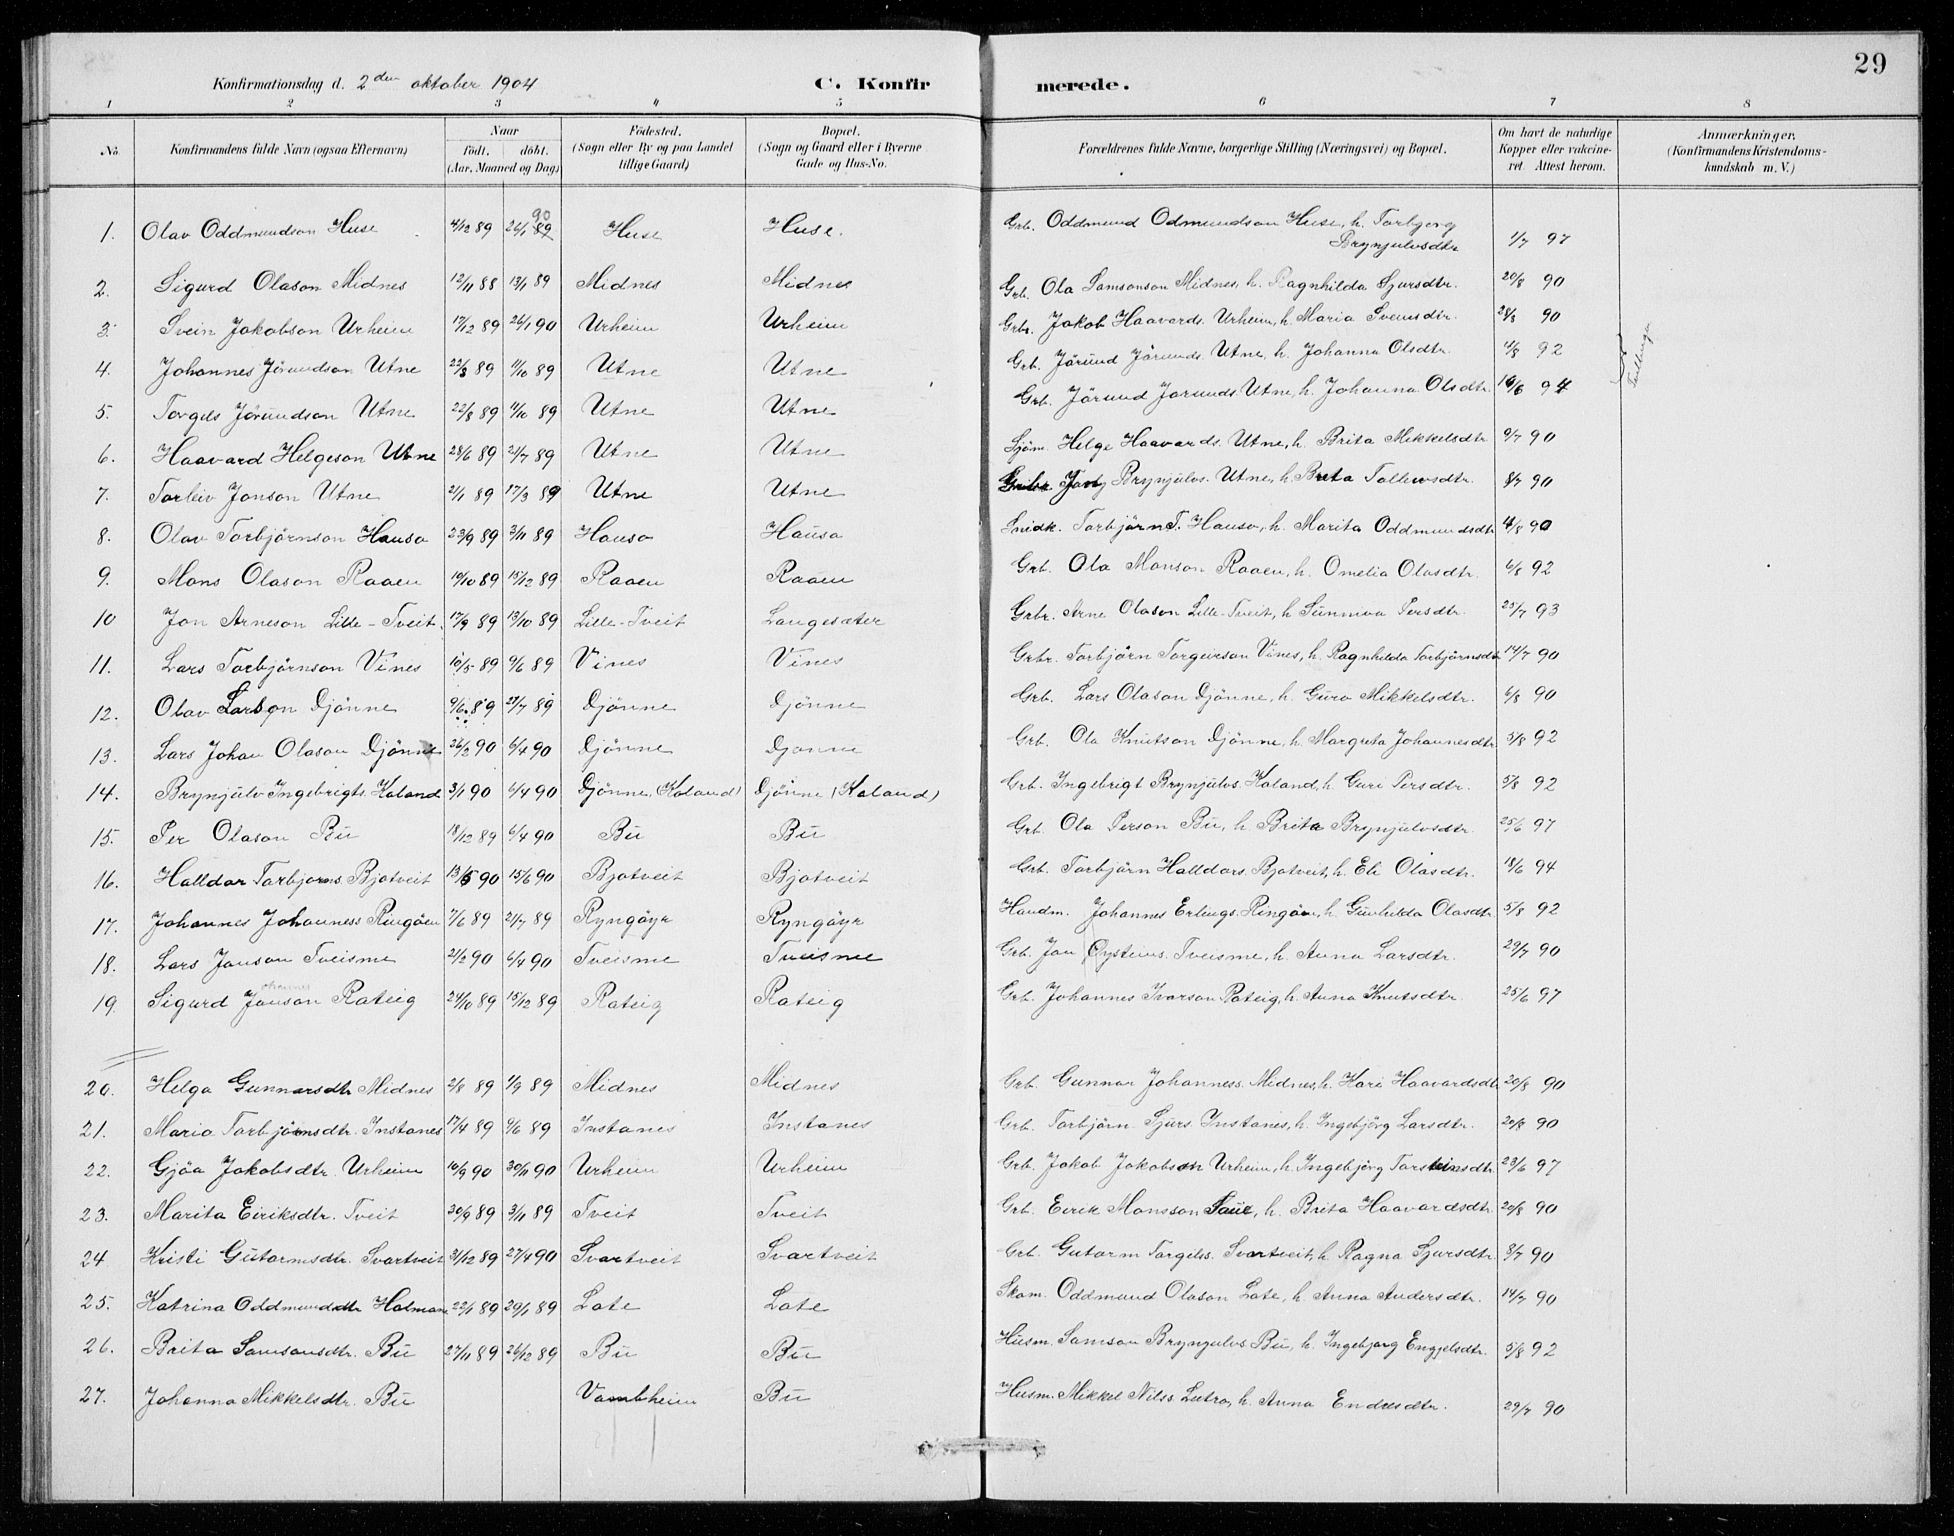 29
Konfirmationsdag d. 2den oktober 1904 C. Konfirmerede.
1 2 3 4 5 6 7 8
No. Konfirmandens fulde Navn (ogsaa Efternavn) Naar födt. döbt. (Aar, Maaned og Dag) Födested. (Sogn eller By og paa Landet tillige Gaard) Bopæl. (Sogn og Gaard eller i Byerne Gade og Hus-No. Forældrenes fulde Navne, borgerlige Stilling (Næringsvei) og Bopæl. Om havt de naturlige Kopper eller vakcineret Attest herom. Anmærkninger. (Konfirmandens Kristendomskundskab m. V.)
1. Olav Oddmundson Huse 4/12 89 26/1 89 90 Huse Huse. Grb. Oddmund Odmundson Huse, h. Torbjorg Brynjulvsdtr 1/7 97
2. Sigurd Olason Midnes 12/11 88 13/1 89 Midnes Midnes Grb. Ola Samsonson Midnes, h. Ragnhilda Sjursdtr. 20/8 90
3. Svein Jakobson Urheim 17/12 89 26/1 90 Urheim Urheim Grbr. Jakob Haavards. Urheim, h. Maria Sveinsdtr. 28/8 90
4. Johannes Jörundson Utne 22/8 89 11/10 89 Utne Utne Grb. Jörund Jörunds. Utne, h. Johanna Olsdtr. 11/8 92 Tvillinger
5. Torgils Jörundson Utne 22/8 89 11/10 89 Utne Utne Grb. Jörund Jorunds. Utne, h. Johanna Olsdtr. 16/6 94
6. Haavard Helgeson Utne 28/6 89 21/7 89 Utne Utne Sjöm. Helge Haavards. Utne, h. Brita Mikkelsdtr. 9/7 90
7. Torleiv Jonson Utne 2/1 89 17/3 89 Utne Utne Jon Brynjulvs. Utne, h. Brita Tollevsdtr. 8/7 90
8. Olav Torbjörnson Hauso 23/9 89 3/11 89 Hauso Hauso Snidk. Torbjörn T. Hauso, h. Marita Oddmundsdtr 4/8 90
9. Mons Olason Raaen 19/10 89 15/12 89 Raaen Raaen Grb. Ola Monson Raaen, h. Omelia Olasdtr. 6/8 92
10 Jon Arneson Lille-Tveit. 17/9 89 13/10 89 Lille-Tveit Langesæter Grbr. Arne Olason Lille-Tveit, h Sunniva Persdtr. 25/7 93
11. Lars Torbjörnson Vines 10/5 89 9/6 89 Vines Vines Grbr. Torbjörn Torgeirson Vines, h. Ragnhilda Torbjörnsdtr 14/7 90
12. Olav Larson Djönne 9/6 89 21/7 89 Djönne Djönne Grb. Lars Olason Djönne, h Guro Mikkelsdtr. 6/8 90
13. Lars Johan Olason Djönne 26/2 90 6/4 90 Djönne Djonne Grb. Ola Knutson Djönne, h. Margreta Johannesdtr. 5/8 92
14. Brynjulv Ingebrigts. Koland 3/1 90 6/4 90 Djönne (Koland) Djönne (Koland) Grb. Ingebrigt Brynjulvs. Koland, h. Guri Persdtr. 5/8 92
15. Per Olason Bu 18/12 89 6/4 90 Bu Bu Grb. Ola Person Bu, h. Brita Brynjulvsdtr. 25/6 97
16. Halldor Torbjorns. Bjotveit 13/5 90 15/6 90 Bjotveit Bjotveit Grb. Torbjörn Halldors. Bjotveit, h. Eli Olasdtr. 18/6 94
17. Johannes Johanness Ringöen 7/6 89 21/7 89 Ryngöyr Ryngöyr Handm. Johannes Erlings. Ringöen, h. Gunhilda Olasdtr. 5/8 92
18. Lars Jonson Tveisme 2/2 90 6/4 90 Tveisme Tveisme Grb. Jon Oysteins. Tveisme, h. Anna Larsdtr. 29/7 90
19. Sigurd Jonson ohannes Ratsig 24/10 89 15/12 89 Ratsig Ratsig Grb. Johannes Ivarson Ratsig, h. Anna Knutsdtr. 25/6 97
20. Helga Gunnarsdtr Midnes 2/8 89 1/9 89 Midnes Midnes Grb. Gunnar Johanness. Midnes, h. Kari Haavardsdtr. 20/8 90
21. Maria Torbjörnsdtr. Instanes 17/4 89 9/6 89 Instanes Instanes Grb. Torbjörn Sjurs. Instanes, h. Ingebjörg Larsdtr. 20/8 90
22. Gjöa Jakobsdtr. Urheim 10/9 90 30/11 90 Urheim Urheim Grb. Jakob Jakobson Urheim, h. Ingebjörg Torsteinsdtr. 23/6 97
23. Marita Eiriksdtr. Tveit 30/9 89 3/11 89 Tveit Tveit Grb. Eirik Monsson h. Brita Haavardsdtr. 20/8 90
24 Kristi Gutormsdtr. Svartveit 31/12 89 27/4 90 Svartveit Svartveit Grb. Gutorm Torgils. Svartveit, h. Ragna Sjursdtr. 8/7 90
25. Katrina Oddmundsdtr Holman 22/1 89 29/1 89 Lote Lote Skom. Oddmund Olason Lote, h. Anna Andersdtr. 14/7 90
26. Brita Samsonsdtr. Bu 27/11 89 26/12 89 Bu Bu Husm. Samson Brynjulvs Bu, h. Ingebjorg Engjelsdtr. 5/8 92
27. Johanna Mikkelsdtr. Bu Vambheim Bu Husm. Mikkel Nilss. h. Anna Endresdtr. 29/7 90